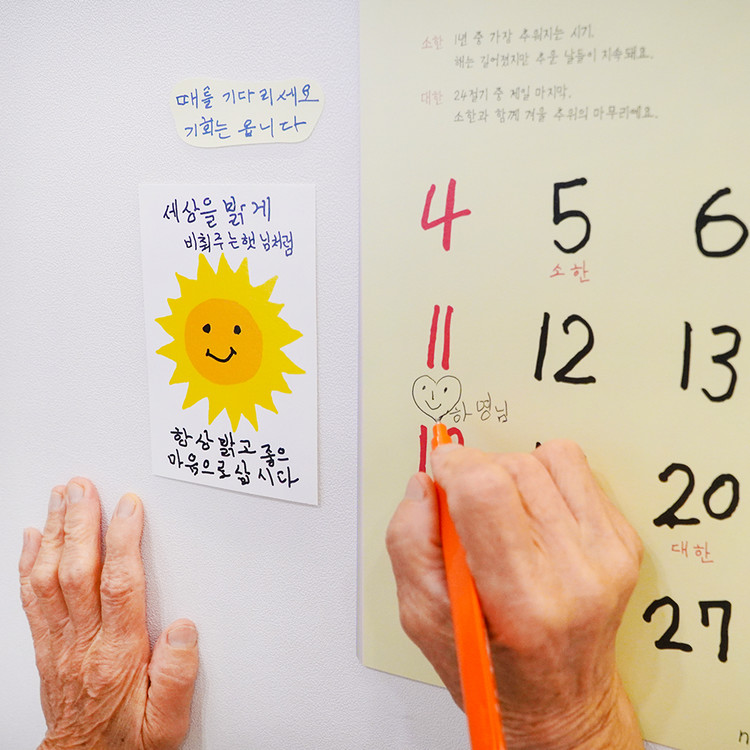 때를 기다리세요
기회는 옵니다
세상을 밝게
비춰주는 햇님처럼
항상 밝고 좋은
마음으로 삽시다
소한 1년 중 가장 추워지는 시기.
해는 길어졌지만 추운 날들이 지속돼요.
대한 24절기 중 제일 마지막.
소한과 함께 겨울 추위의 마무리예요.
4 5 6
소한
11 12 13
하명님
20
대한
27